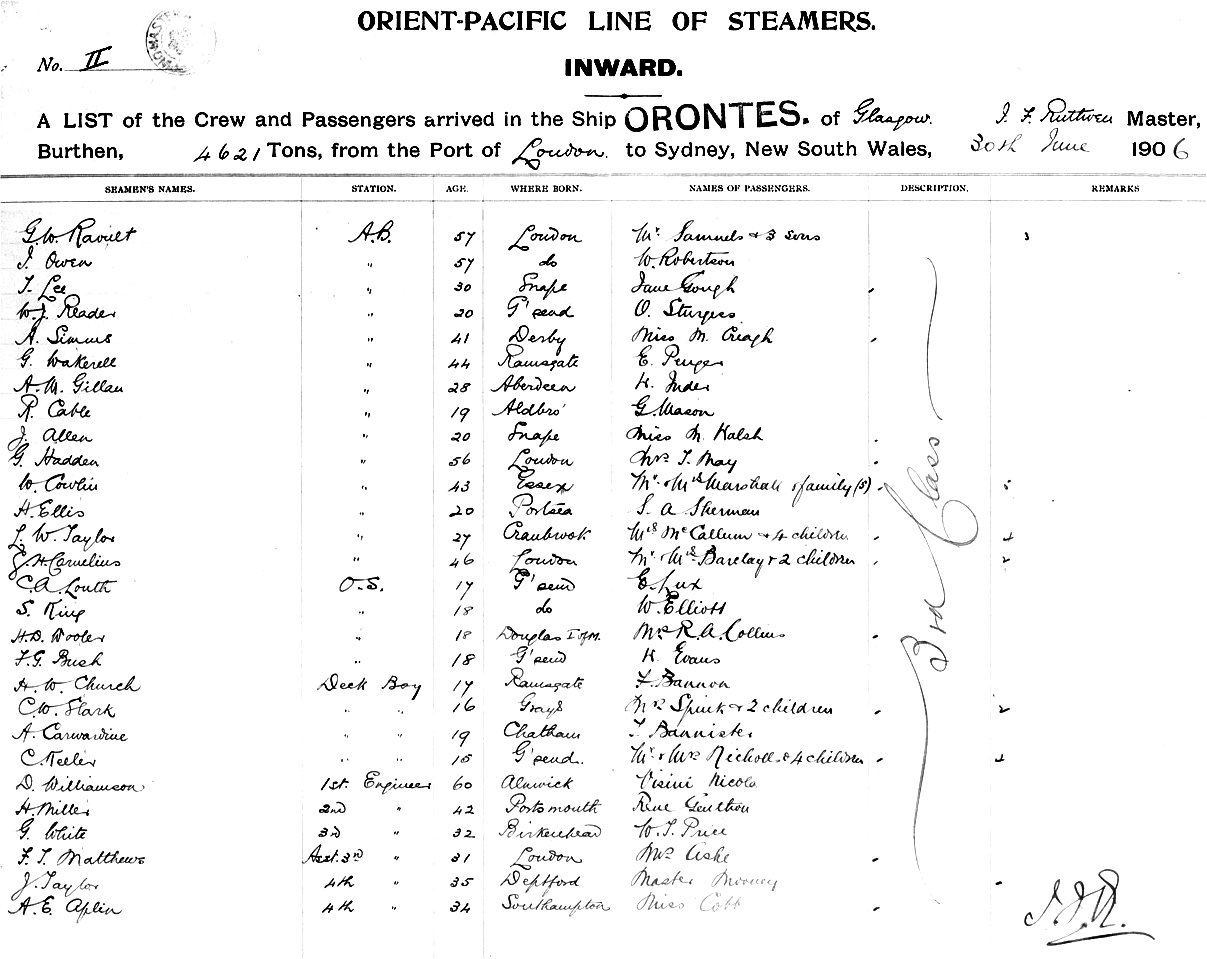 ORIENT-PACIFIC LINE OF STEAMERS.
No. II
INWARD.
A LIST of the Crew and Passengers arrived in the Ship ORONTES. of Glasgow. J. F. Ruthven Master,
Burthen, 4621 Tons, from the Port of London. to Sydney, New South Wales, 30th June 1906
SEAMEN'S NAMES. STATION. AGE. WHERE BORN. NAMES OF PASSENGERS. DESCRIPTION. REMARKS
G. W. A.B. 57 London Mr. Samuels & 3 sons 3
J. Owen " 57 do W. Robertson
T. Lee " 30 Snape Jane Gough
W. J. Reader " 20 G'send O. Sturgess
A. Simms " 41 Derby Miss M. Creagh
G. Wakerell " 44 Ramsgate E.
A. M. Gillan " 28 Aberdeen H. Inder
R. Cable " 19 Aldbro' G. Mason
J. Allen " 20 Snape Miss M. Halsh
G. Hadden " 56 London Mrs T. May
W. Cowlin " 43 Essex Mr. & Mrs Marshall & family (5) 5
H. Ellis " 20 Portsea S. A Sherman
L. W. Taylor " 27 Cranbrook Mrs McCallum & 4 children 4
J. H. Cornelius " 46 London Mr. & Mrs. Barclay & 2 children 2
C. A. Louth O.S. 17 G'send E. Lux
S. King " 18 do W. Elliott
H. D. Wooler " 18 Douglas I of M. Mrs R. A. Collins
F. G. Bush " 18 G'send H. Evans
H. W. Church Deck Boy 17 Ramsgate F. Bannon
C. W. Stark " " 16 Grays Mrs Spink & 2 children 2
A. Carwardine " " 19 Chatham T. Bannister
C. Keeler " " 15 G'send. Mr. & Mrs Nicholls & 4 children 4
D. Williamson 1st. Engineer 60 Alnwick Visini Nicola
H. Miller 2nd " 42 Portsmouth Rene
G. White 3rd " 32 Birkenhead W. T. Price
F. T. Matthews Asst. 3rd " 31 London Mrs Ashe
J. Taylor 4th " 35 Deptford Master Mooney
A. E. Aplin 4th " 34 Southampton Miss Cobb
3rd Class
J.F.R.